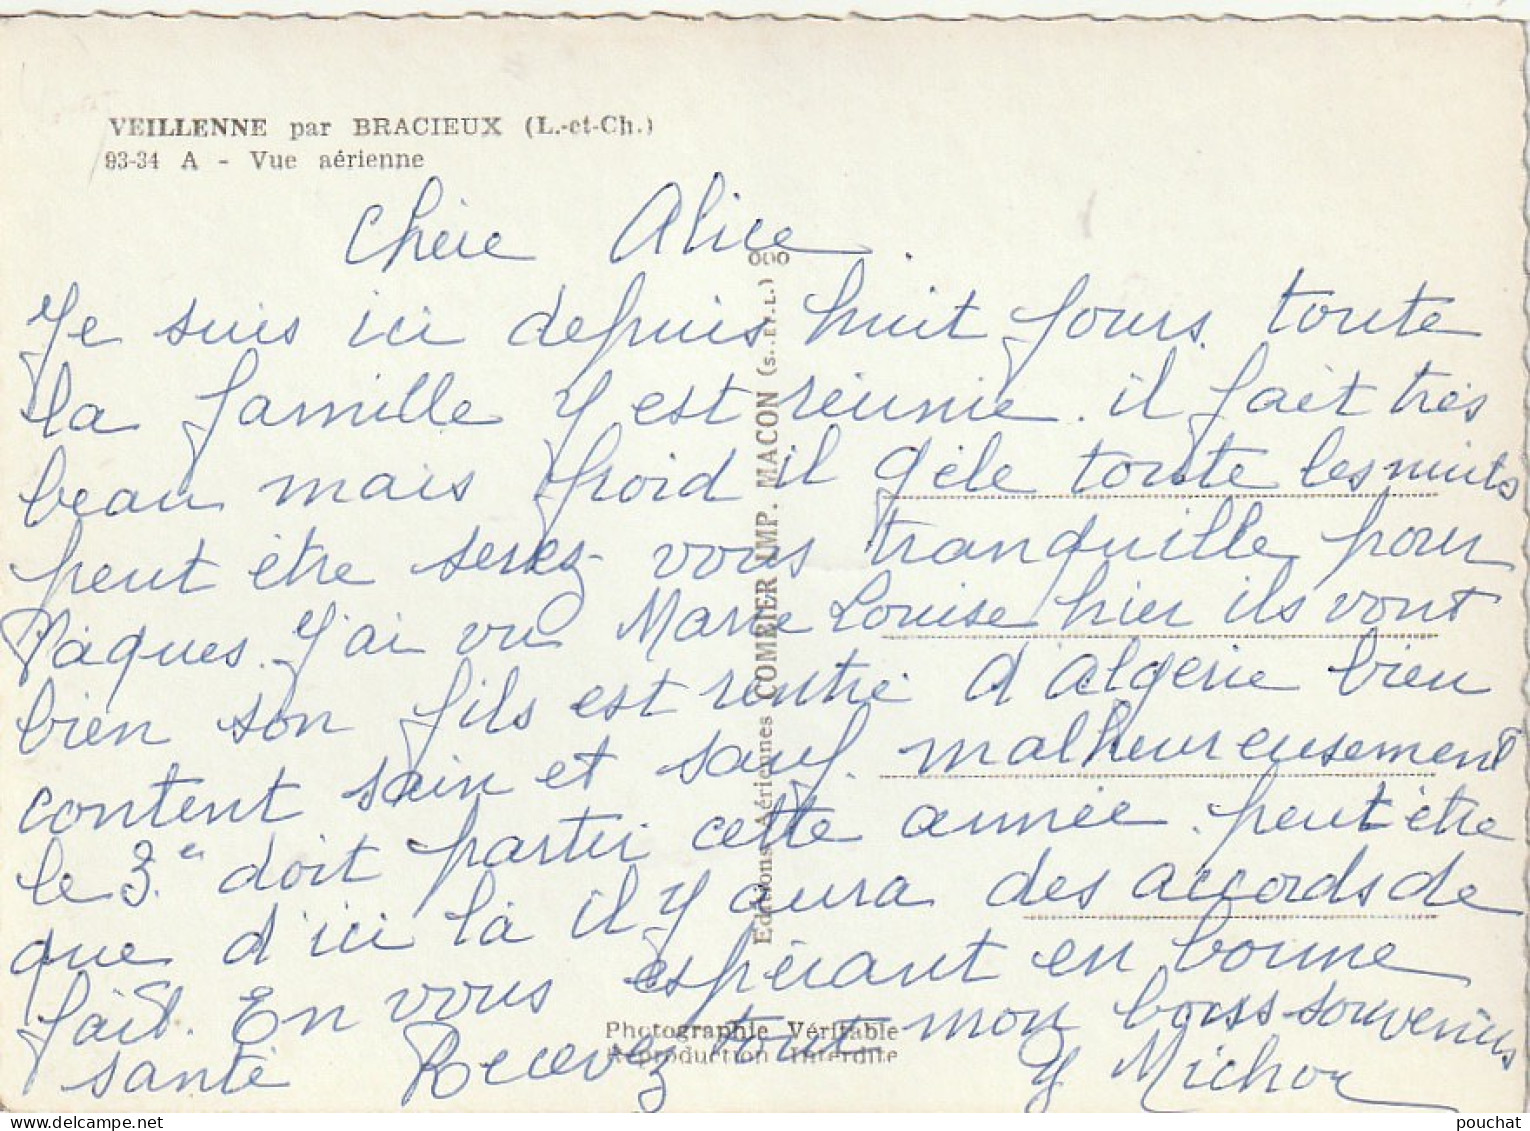 VEILLENNE par BRACIEUX (L.-et-Ch.)
93-34 A - Vue aérienne
Chère Alice.
Je suis ici depuis huit jours. toute
la famille y est réunie. il fait très
beau mais froid il gèle toute les nuits
peut être serez vous tranquille pour
Pâques. J'ai vu Marie Louise hier ils vont
bien son fils est rentré d'algerie bien
content sain et sauf. malheureusement
le 3.e doit partir cette année. peut être
que d'ici là il y aura des accords de
fait. En vous espérant en bonne
santé Recevez tout mon bons souvenirs
Y Michou
Editions Aériennes COMBIER IMP. MACON (S.-ET-L.) 000
Photographie Véritable
Reproduction Interdite
pouchat